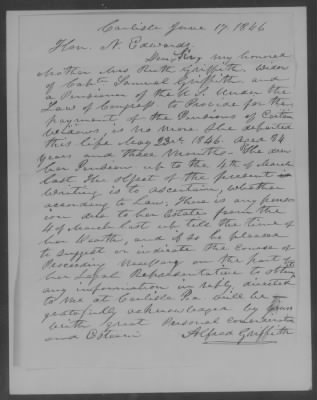 Carlisle June 17. 1846
Hon. N. Edwards
Dear Sir, my honored
Mother Mrs Ruth Griffith, Widow
of Capt Samuel Griffith, and
a Pensioner of the U.S. Under the
Law of Congress to Provide for the
payment, of the Pensions of Certain
Widows, is no more She departed
this life May 23d 1846. aged 94
years and three Months. She drew
her Pension up to the 4th of March
last. The Object of the present
Writing is to ascertain, whether
according to Law, There is any pension
due to her Estate from the
4 of March last up till the time of
her Death, and if so be please
to suggest or indicate the Course of
Proceeding Necessary on the part of
her Legal Representative to obtain
any information in reply, directed
to me at Carlisle Pa. will be
gratefully acknowledged by
With great Personal consideration
and Esteem
Alfred Griffith